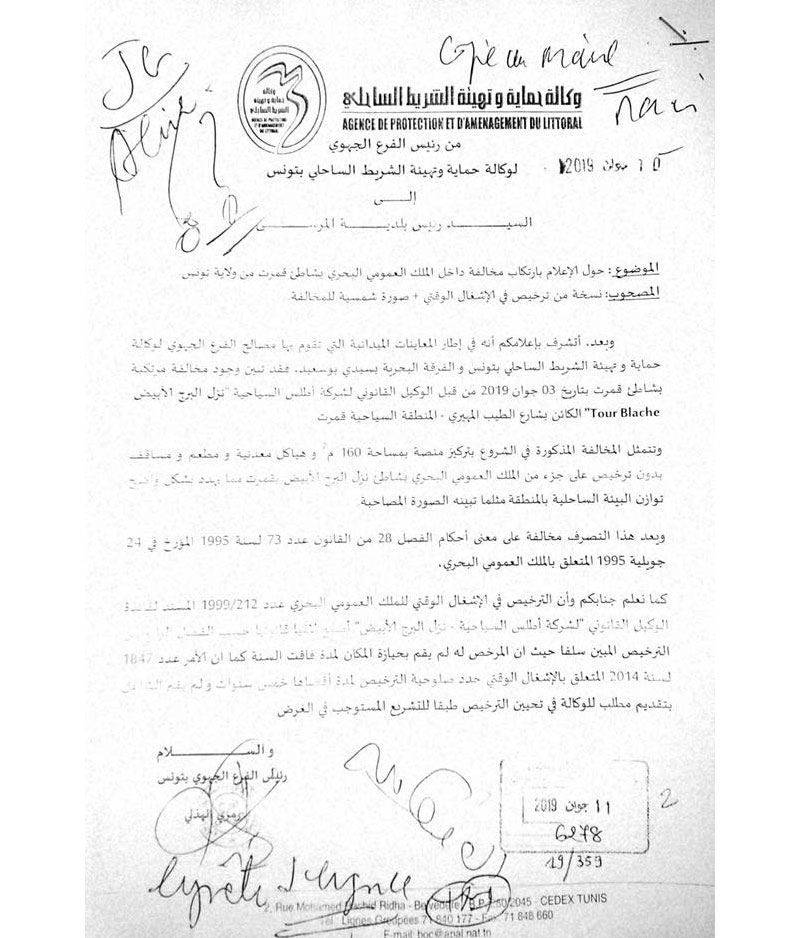 Copie au Maire
وكالة حماية و تهيئة الشريط الساحلي
AGENCE DE PROTECTION ET D'AMENAGEMENT DU LITTORAL
وكالة
حماية و تهيئة
الشريط الساحلي
AGENCE DE PROTECTION
ET D'AMENAGEMENT
DU LITTORAL
من رئيس الفرع الجهوي
لوكالة حماية وتهيئة الشريط الساحلي بتونس
10 جوان 2019
إلى
السيد رئيس بلدية المرسى
الموضوع: حول الإعلام بارتكاب مخالفة داخل الملك العمومي البحري بشاطئ قمرت من ولاية تونس
المصحوب: نسخة من ترخيص في الإشغال الوقتي + صورة شمسية للمخالفة.
وبعد، أتشرف بإعلامكم أنه في إطار المعاينات الميدانية التي تقوم بها مصالح الفرع الجهوي لوكالة
حماية و تهيئة الشريط الساحلي بتونس و الفرقة البحرية بسيدي بوسعيد، فقد تبين وجود مخالفة مرتكبة
بشاطئ قمرت بتاريخ 03 جوان 2019 من قبل الوكيل القانوني لشركة أطلس السياحية "نزل البرج الأبيض
Tour Blache" الكائن بشارع الطيب المهيري - المنطقة السياحية قمرت
وتتمثل المخالفة المذكورة في الشروع بتركيز منصة بمساحة 160 م2 و هياكل معدنية و مطعم و مساقف
بدون ترخيص على جزء من الملك العمومي البحري بشاطئ نزل البرج الأبيض بقمرت مما يهدد بشكل واضح
توازن البيئة الساحلية بالمنطقة مثلما تبينه الصورة المصاحبة.
وبعد هذا التصرف مخالفة على معنى أحكام الفصل 28 من القانون عدد 73 لسنة 1995 المؤرخ في 24
جويلية 1995 المتعلق بالملك العمومي البحري.
كما نعلم جنابكم وأن الترخيص في الإشغال الوقتي للملك العمومي البحري عدد 1999/212 المسند لفائدة
الوكيل القانوني "لشركة أطلس السياحية - نزل البرج الأبيض" أصبح لاغيا قانونيا حسب الفصل
الترخيص المبين سلفا حيث ان المرخص له لم يقم بحيازة المكان لمدة فاقت السنة كما ان الأمر عدد 1847
لسنة 2014 المتعلق بالإشغال الوقتي حدد صلوحية الترخيص لمدة أقصاها خمس سنوات و لم يقم
بتقديم مطلب للوكالة في تحيين الترخيص طبقا للتشريع المستوجب في الغرض
و السلام
رئيس الفرع الجهوي بتونس
رمزي الهذلي
11 جوان 2019
6278
19/359
2
2, Rue Mohamed Rachid Ridha - Belvédère - B.P 2045 - CEDEX TUNIS
Tél : Lignes Groupées 71 840 177 - Fax 71 848 660
E-mail: boc@apal.nat.tn